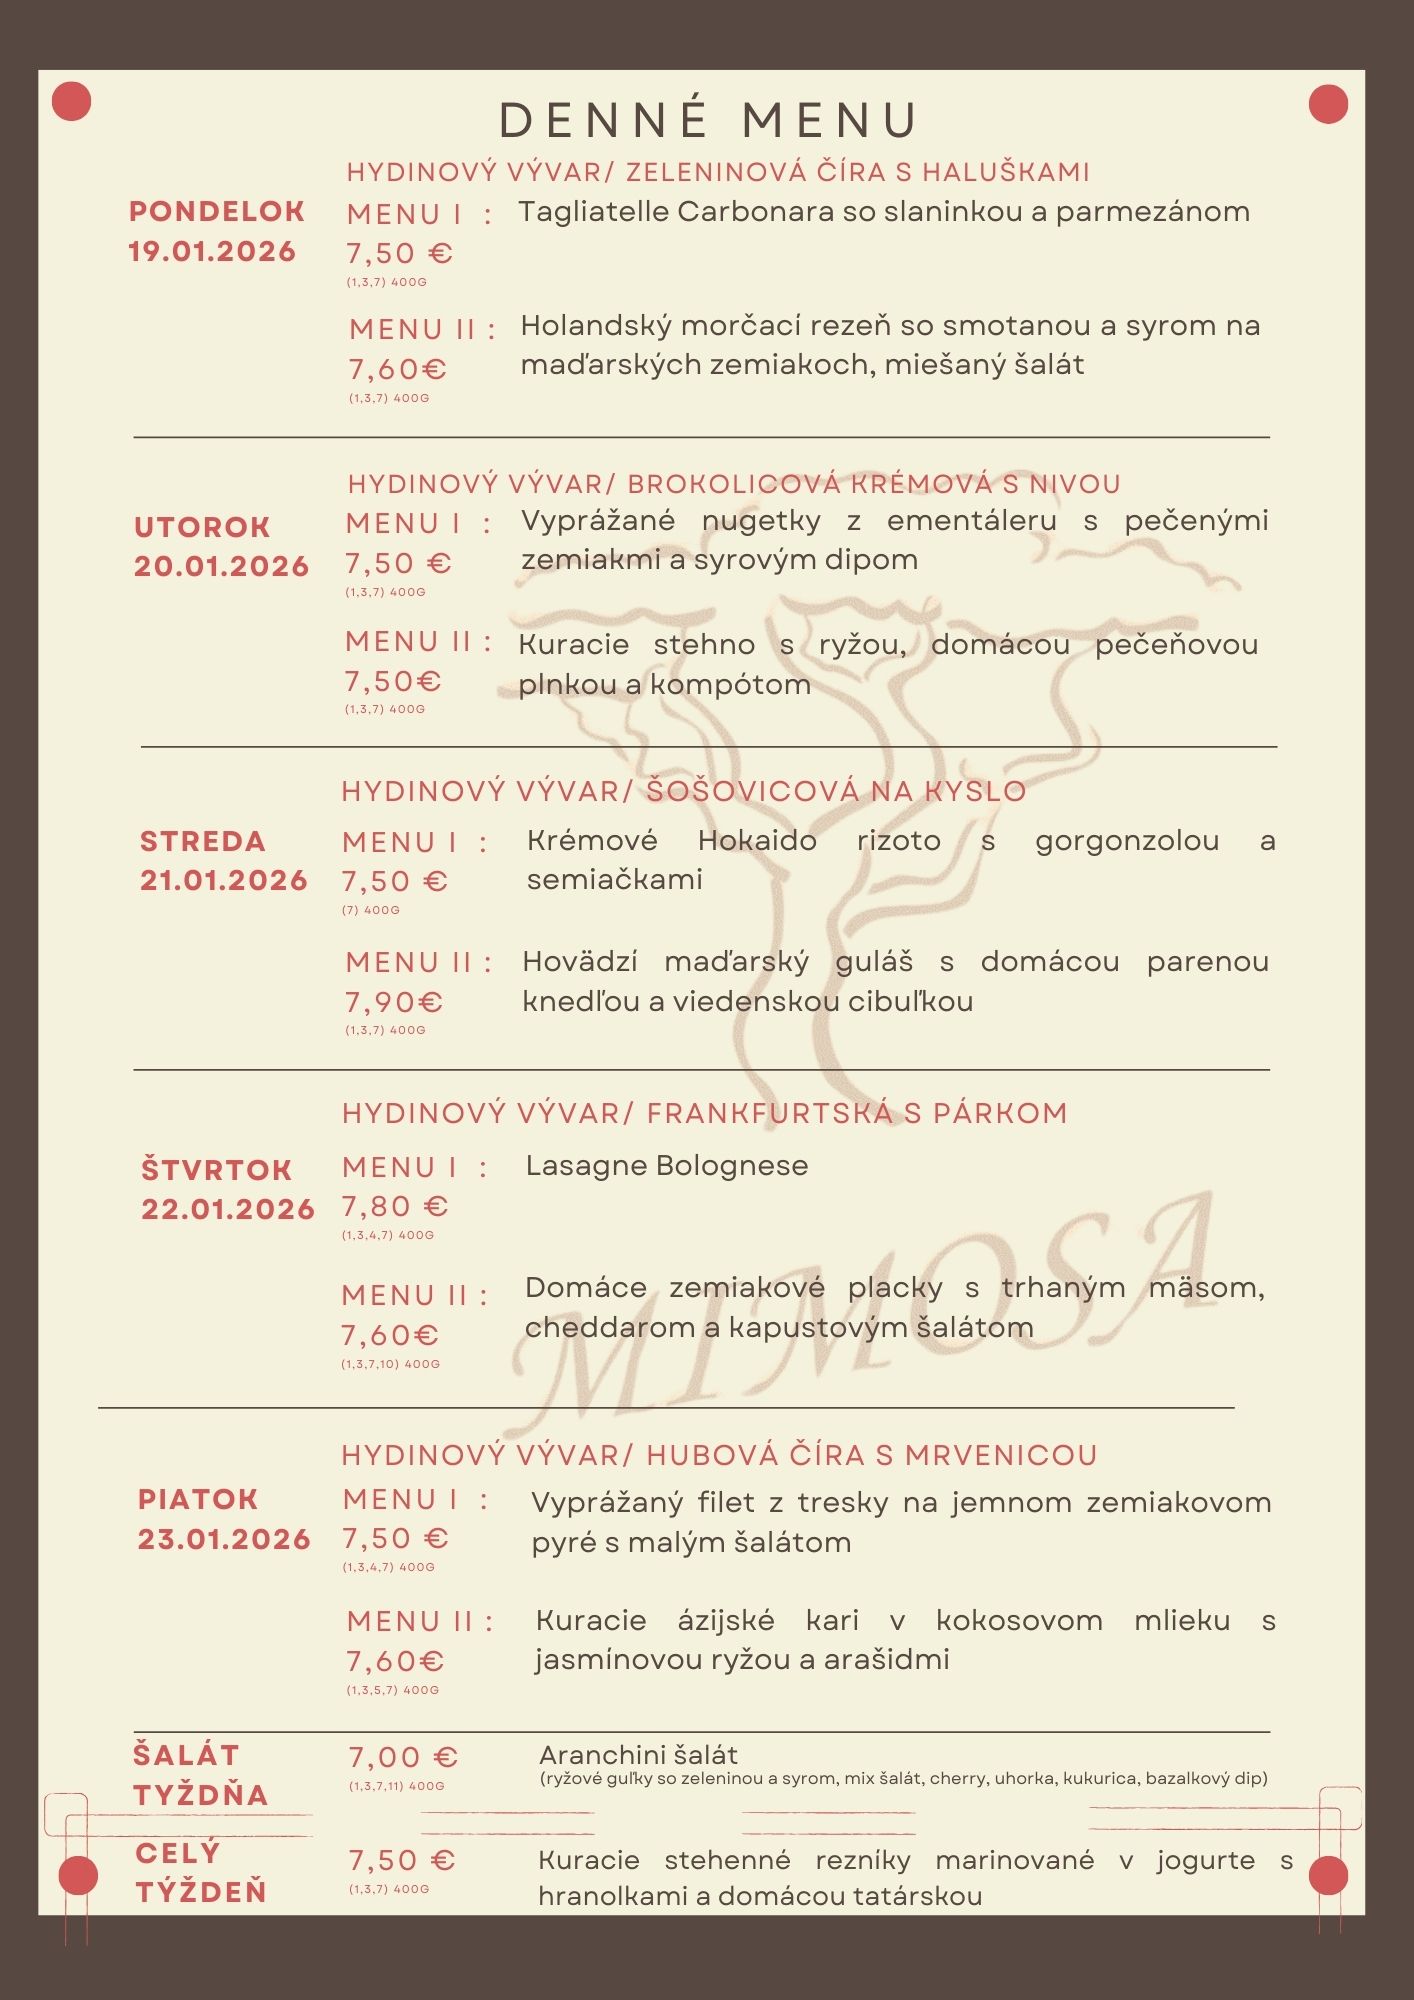 DENNÉ MENU
HYDINOVÝ VÝVAR/ ZELENINOVÁ ČÍRA S HALUŠKAMI
PONDELOK
19.01.2026
MENU I :
7,50 €
(1,3,7) 400G
Tagliatelle Carbonara so slaninkou a parmezánom
MENU II :
7,60€
(1,3,7) 400G
Holandský morčací rezeň so smotanou a syrom na
maďarských zemiakoch, miešaný šalát
HYDINOVÝ VÝVAR/ BROKOLICOVÁ KRÉMOVÁ S NIVOU
UTOROK
20.01.2026
MENU I :
7,50 €
(1,3,7) 400G
Vyprážané nugetky z ementáleru s pečenými
zemiakmi a syrovým dipom
MENU II :
7,50€
(1,3,7) 400G
Kuracie stehno s ryžou, domácou pečeňovou
plnkou a kompótom
HYDINOVÝ VÝVAR/ ŠOŠOVICOVÁ NA KYSLO
STREDA
21.01.2026
MENU I :
7,50 €
(7) 400G
Krémové Hokaido rizoto s gorgonzolou a
semiačkami
MENU II :
7,90€
(1,3,7) 400G
Hovädzí maďarský guláš s domácou parenou
knedľou a viedenskou cibuľkou
HYDINOVÝ VÝVAR/ FRANKFURTSKÁ S PÁRKOM
ŠTVRTOK
22.01.2026
MENU I :
7,80 €
(1,3,4,7) 400G
Lasagne Bolognese
MENU II :
7,60€
(1,3,7,10) 400G
Domáce zemiakové placky s trhaným mäsom,
cheddarom a kapustovým šalátom
MIMOSA
HYDINOVÝ VÝVAR/ HUBOVÁ ČÍRA S MRVENICOU
PIATOK
23.01.2026
MENU I :
7,50 €
(1,3,4,7) 400G
Vyprážaný filet z tresky na jemnom zemiakovom
pyré s malým šalátom
MENU II :
7,60€
(1,3,5,7) 400G
Kuracie ázijské kari v kokosovom mlieku s
jasmínovou ryžou a arašidmi
ŠALÁT
TYŽDŇA
7,00 €
(1,3,7,11) 400G
Aranchini šalát
(ryžové guľky so zeleninou a syrom, mix šalát, cherry, uhorka, kukurica, bazalkový dip)
CELÝ
TÝŽDEŇ
7,50 €
(1,3,7) 400G
Kuracie stehenné rezníky marinované v jogurte s
hranolkami a domácou tatárskou